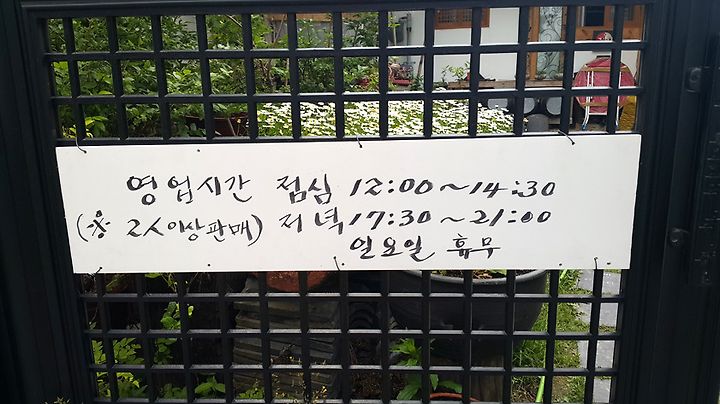 영업시간 점심 12:00~14:30
(※ 2人이상판매) 저녁 17:30~21:00
일요일 휴무